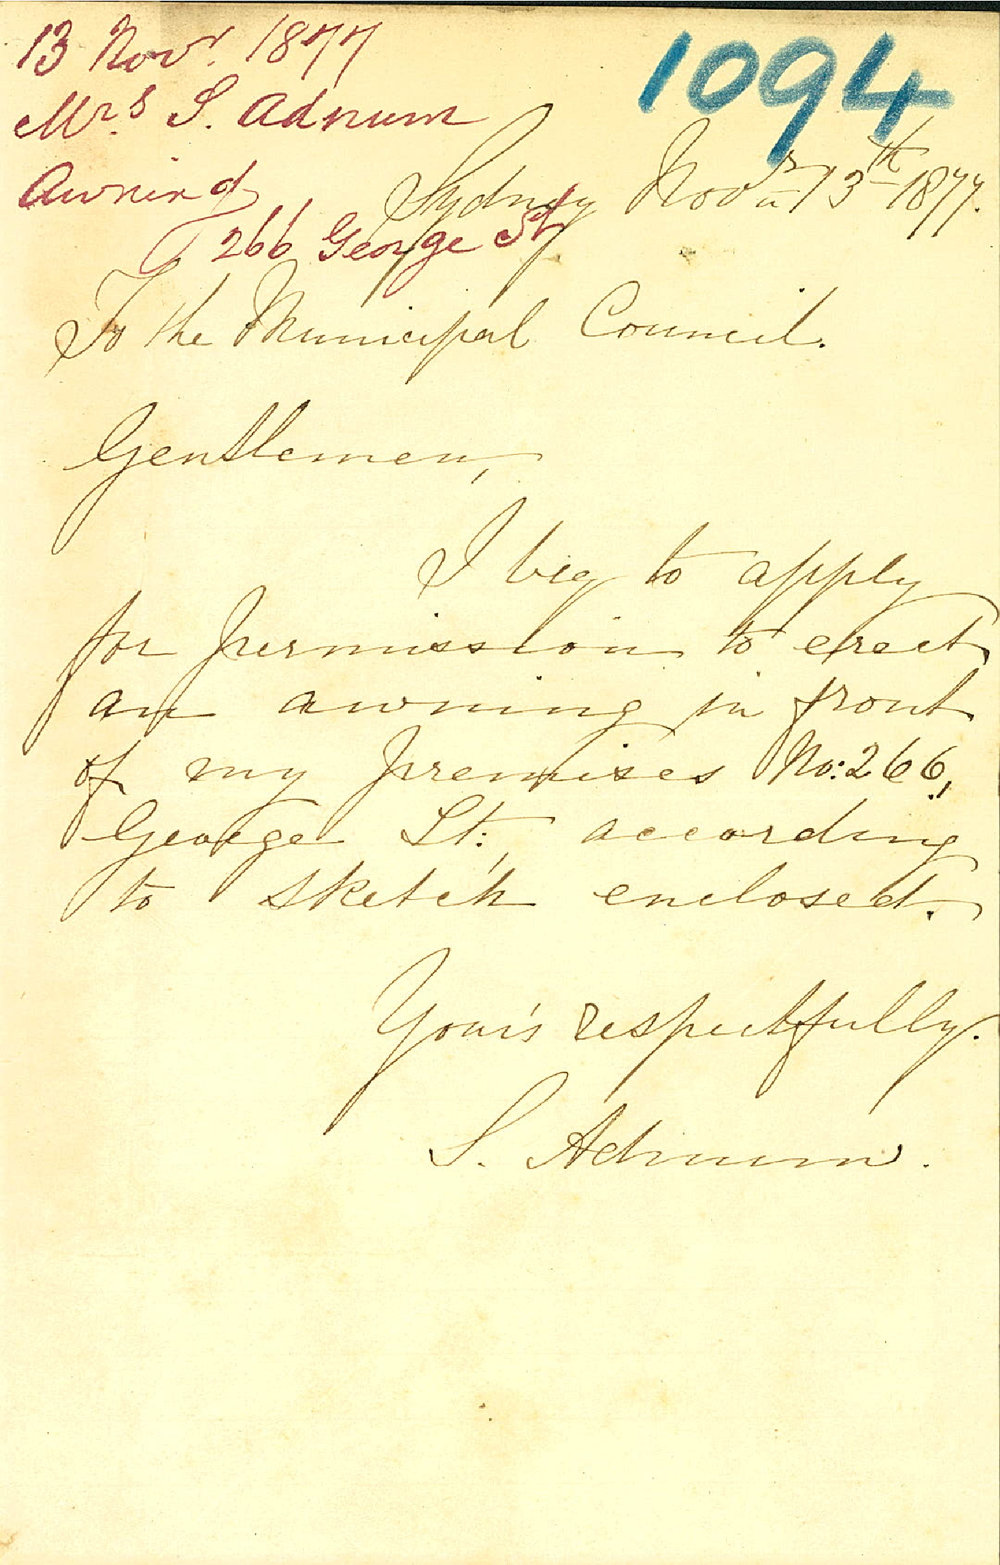 13 Novr. 1877
Mrs. S. Adnum
Awning
266 George St
1094
Sydney Novr 13th 1877.
To the Municipal Council.
Gentlemen,
I beg to apply
for permission to erect
an awning in front
of my premises No: 266,
George St:, according
to sketch enclosed.
Your's respectfully.
S. Adnum.